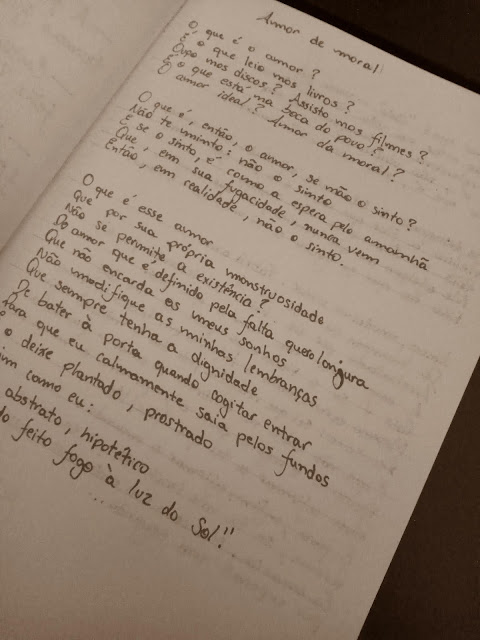 Amor de moral
O que é o amor?
É o que leio nos livros?
Ouço nos discos? Assisto nos filmes?
É o que está na boca do povo?
O amor ideal? Amor da moral?
O que é, então, o amor, se não o sinto?
Não te minto: não o sinto
E se o sinto, é como a espera pelo amanhã
Que, em sua fugacidade, nunca vem
Então, em realidade, não o sinto.
O que é esse amor
Que por sua própria monstruosidade
Não se permite a existência?
Do amor que é definido pela falta quero longura
Que não encarda os meus sonhos
Não modifique as minhas lembranças
Que sempre tenha a dignidade
De bater à porta quando cogitar entrar
Para que eu calmamente saia pelos fundos
o deixe plantado, prostrado
como eu:
abstrato, hipotético
feito fogo à luz do Sol!"
...